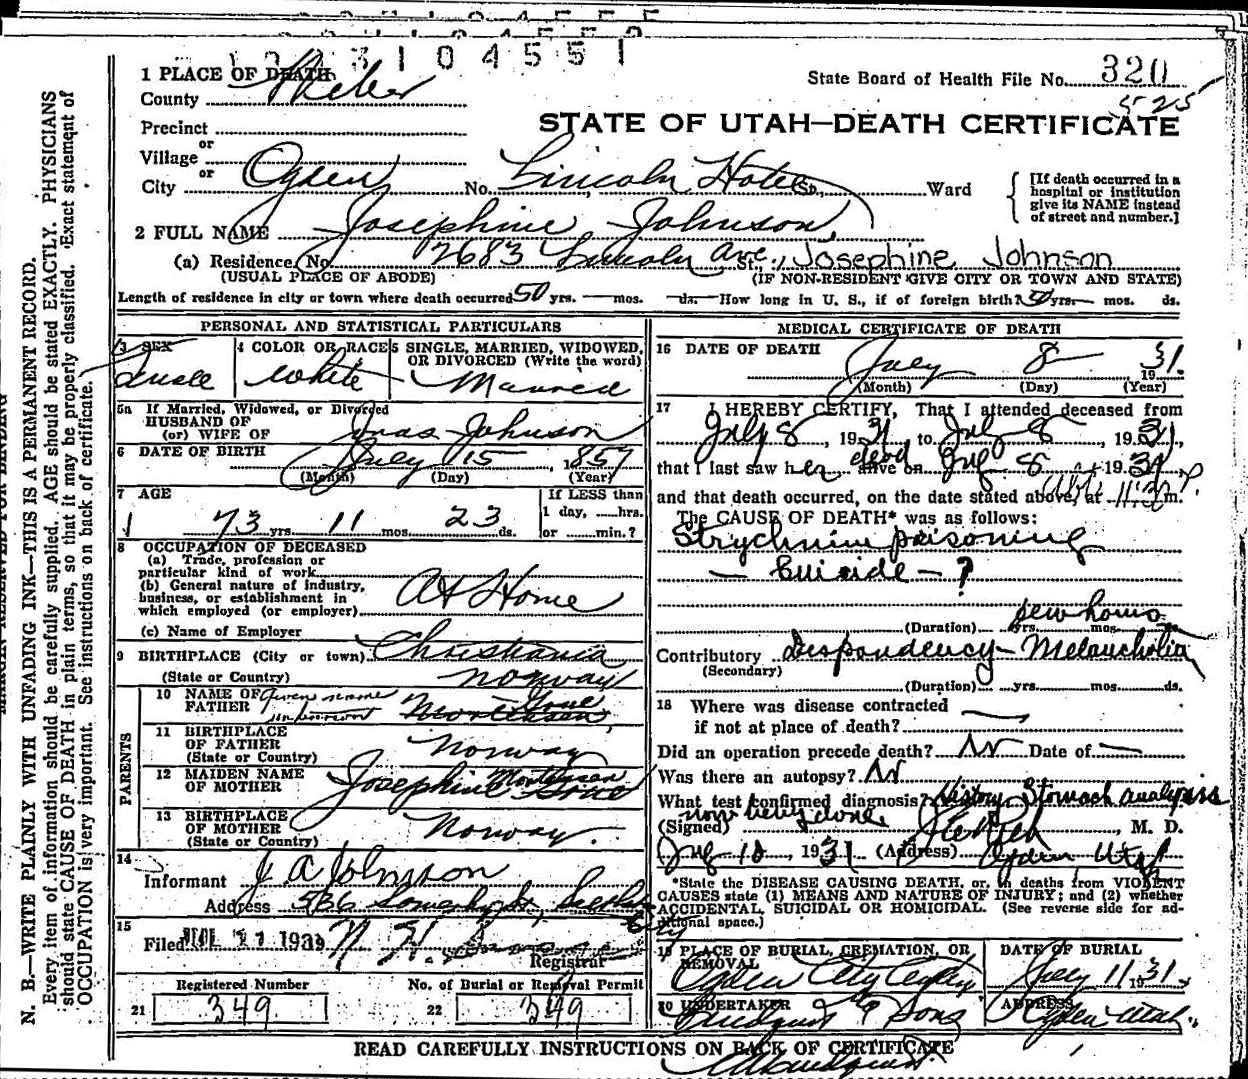 1 2 3 1 0 4 5 5 1
1 PLACE OF DEATH
State Board of Health File No. 320
County Weber
525
Precinct
STATE OF UTAH—DEATH CERTIFICATE
or
Village
or
City Ogden No. Lincoln Hotel St., Ward
[If death occurred in a hospital or institution give its NAME instead of street and number.]
2 FULL NAME Josephine Johnson
(a) Residence. No. 2683 Lincoln Ave. St., Josephine Johnson
(USUAL PLACE OF ABODE) (IF NON-RESIDENT GIVE CITY OR TOWN AND STATE)
Length of residence in city or town where death occurred 50 yrs. — mos. — ds. How long in U. S., if of foreign birth? 50 yrs. — mos. ds.
PERSONAL AND STATISTICAL PARTICULARS
3 SEX
4 COLOR OR RACE
5 SINGLE, MARRIED, WIDOWED, OR DIVORCED (Write the word)
White
Married
5a If Married, Widowed, or Divorced
HUSBAND OF
(or) WIFE OF Jonas Johnson
6 DATE OF BIRTH July 15, 1857
(Month) (Day) (Year)
7 AGE
If LESS than
1 day, ......hrs.
or ......min.?
73 yrs. 11 mos. 23 ds.
8 OCCUPATION OF DECEASED
(a) Trade, profession or particular kind of work
(b) General nature of industry, business, or establishment in which employed (or employer) At Home
(c) Name of Employer
9 BIRTHPLACE (City or town) Christiania
(State or Country) Norway
PARENTS
10 NAME OF FATHER Given name unknown Mortensen
11 BIRTHPLACE OF FATHER Norway
(State or Country)
12 MAIDEN NAME OF MOTHER Josephine Mortensen
13 BIRTHPLACE OF MOTHER Norway.
(State or Country)
14
Informant J A Johnson
Address 536
15
Filed JUL 11 1931 N. H.
Registrar
Registered Number
No. of Burial or Removal Permit
21 349
22 349
MEDICAL CERTIFICATE OF DEATH
16 DATE OF DEATH July 8 1931.
(Month) (Day) (Year)
17 I HEREBY CERTIFY, That I attended deceased from
July 8, 1931, to July 8, 1931,
that I last saw her dead alive on July 8, 1931,
and that death occurred, on the date stated above, at 11:30 P.m.
The CAUSE OF DEATH* was as follows:
Strychnine poisoning
— Suicide — ?
few hours
(Duration) yrs. mos. ds.
Contributory Despondency - Melancholia
(Secondary)
(Duration) yrs. mos. ds.
18 Where was disease contracted
if not at place of death? —
Did an operation precede death? No Date of —
Was there an autopsy? No
What test confirmed diagnosis? History Stomach analysis
now being done
(Signed) , M. D.
July 10, 1931 (Address) Ogden Utah
*State the DISEASE CAUSING DEATH, or, in deaths from VIOLENT
CAUSES state (1) MEANS AND NATURE OF INJURY; and (2) whether
ACCIDENTAL, SUICIDAL OR HOMICIDAL. (See reverse side for additional space.)
19 PLACE OF BURIAL, CREMATION, OR REMOVAL
DATE OF BURIAL
Ogden City
July 11 1931
20 UNDERTAKER
ADDRESS
& Sons
Ogden Utah.
READ CAREFULLY INSTRUCTIONS ON BACK OF CERTIFICATE
N. B.—WRITE PLAINLY WITH UNFADING INK—THIS IS A PERMANENT RECORD.
Every item of information should be carefully supplied. AGE should be stated EXACTLY. PHYSICIANS
should state CAUSE OF DEATH in plain terms, so that it may be properly classified. Exact statement of
OCCUPATION is very important. See instructions on back of certificate.